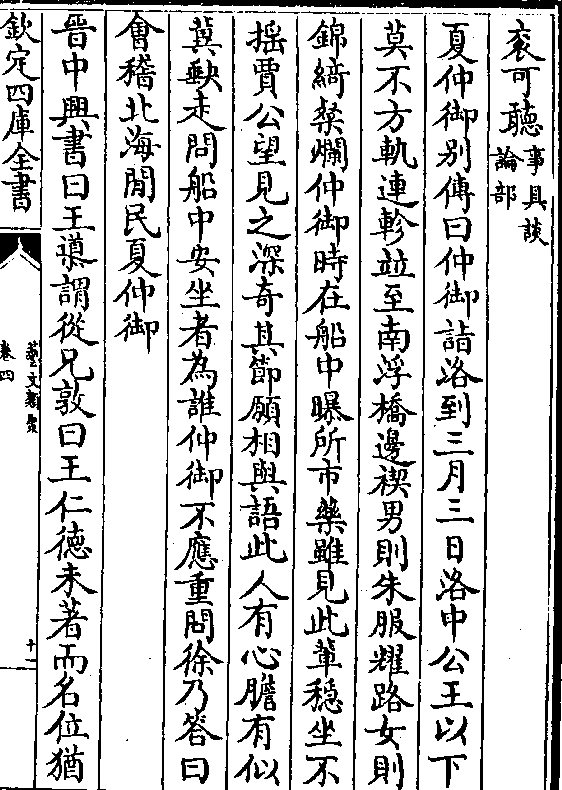 衮可聽事具談論部
夏仲御别傳曰仲御詣洛到三月三日洛中公王以下
莫不方軌連軫並至南浮橋邊禊男則朱服耀路女則
錦綺粲爛仲御時在船中曝所市藥雖見此輩穩坐不
揺賈公望見之深奇其節願相與語此人有心膽有似
冀缺走問船中安坐者為誰仲御不應重問徐乃答曰
會稽北海閒民夏仲御
晉中興書曰王導謂從兄敦曰王仁徳未著而名位猶
欽定四庫全書
藝文類聚
卷四
十二